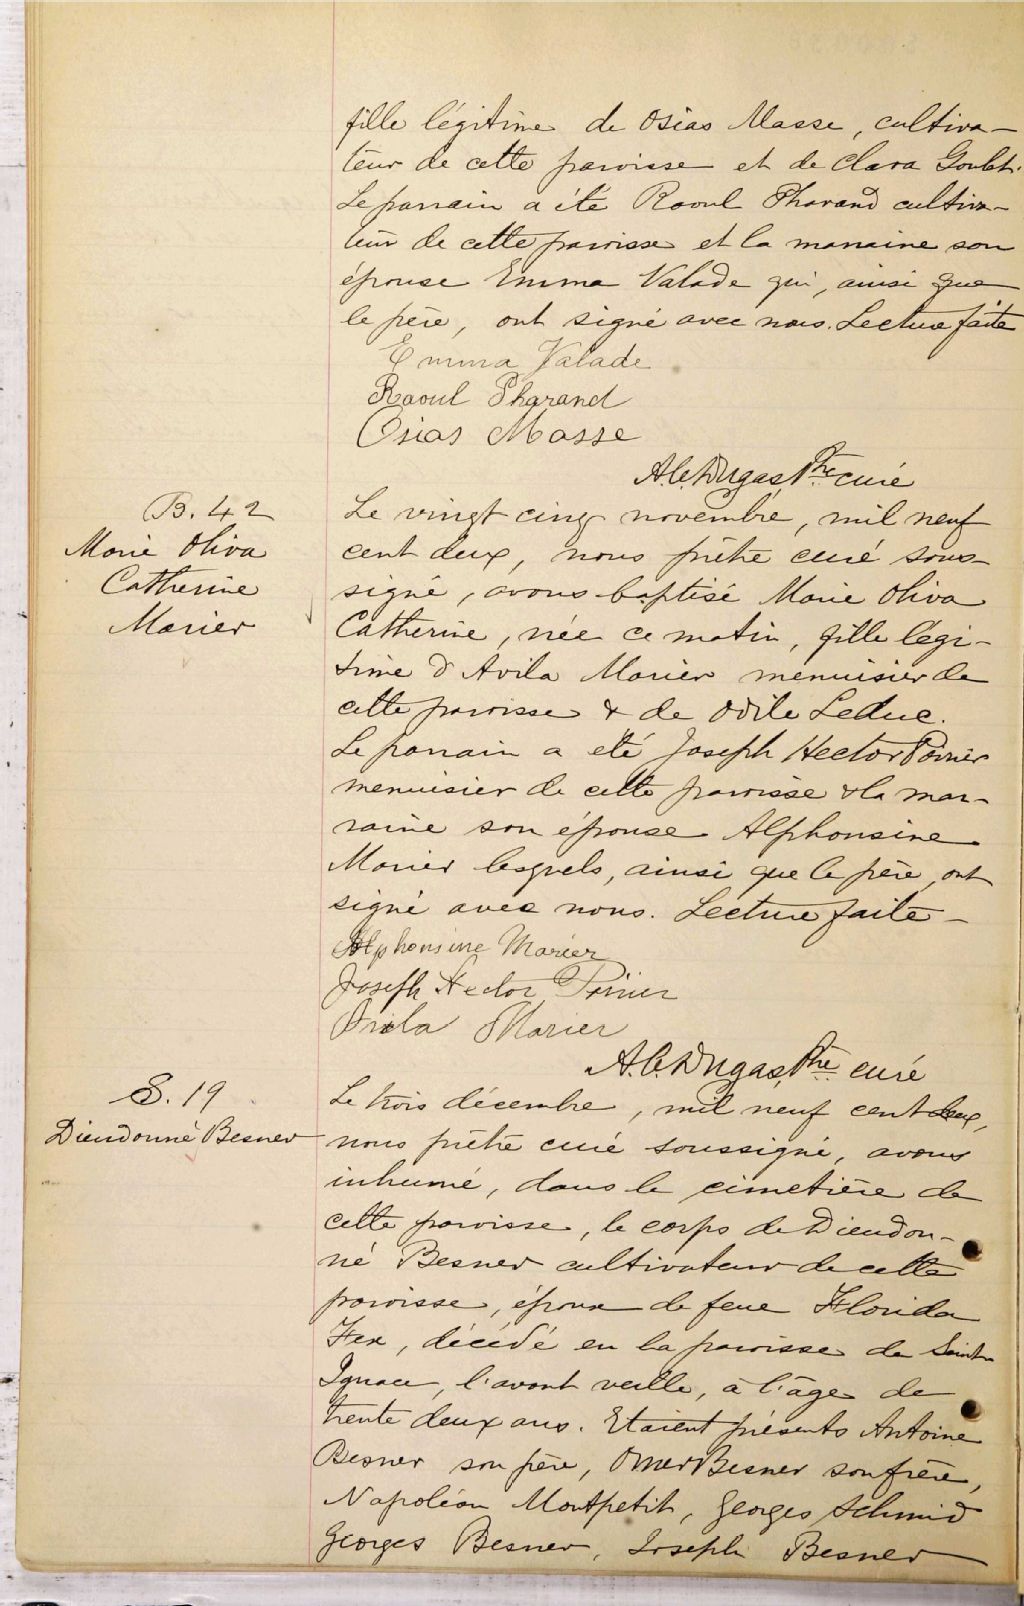 fille légitime de Osias Masse, cultiva-
teur de cette paroisse et de Clara Goulet.
Le parrain a été Raoul Pharand cultiva-
teur de cette paroisse et la marraine son
épouse Emma Valade qui, ainsi que
le père, ont signé avec nous. Lecture faite
Emma Valade
Raoul Pharand
Osias Masse
A.C. Dugas, Ptre curé
B. 42
Marie Oliva
Catherine
Marier
Le vingt cinq novembre, mil neuf
cent deux, nous prêtre curé sous-
signé, avons baptisé Marie Oliva
Catherine, née ce matin, fille légi-
time d'Avila Marier menuisier de
cette paroisse & de Odile Leduc.
Le parrain a été Joseph Hector Poirier
menuisier de cette paroisse & la mar-
raine son épouse Alphonsine
Marier lesquels, ainsi que le père, ont
signé avec nous. Lecture faite -
Alphonsine Marier
Joseph Hector Poirier
Avila Marier
A.C. Dugas, Ptre curé
S. 19
Dieudonné Besner
Le trois décembre, mil neuf cent deux,
nous prêtre curé soussigné, avons
inhumé, dans le cimetière de
cette paroisse, le corps de Dieudon-
né Besner cultivateur de cette
paroisse, époux de feue Florida
décédé en la paroisse de Saint
Ignace, l'avant veille, à l'âge de
trente deux ans. Etaient présents Antoine
Besner son père, Omer Besner son frère,
Napoléon Montpetit, Georges Schmid
Georges Besner, Joseph Besner